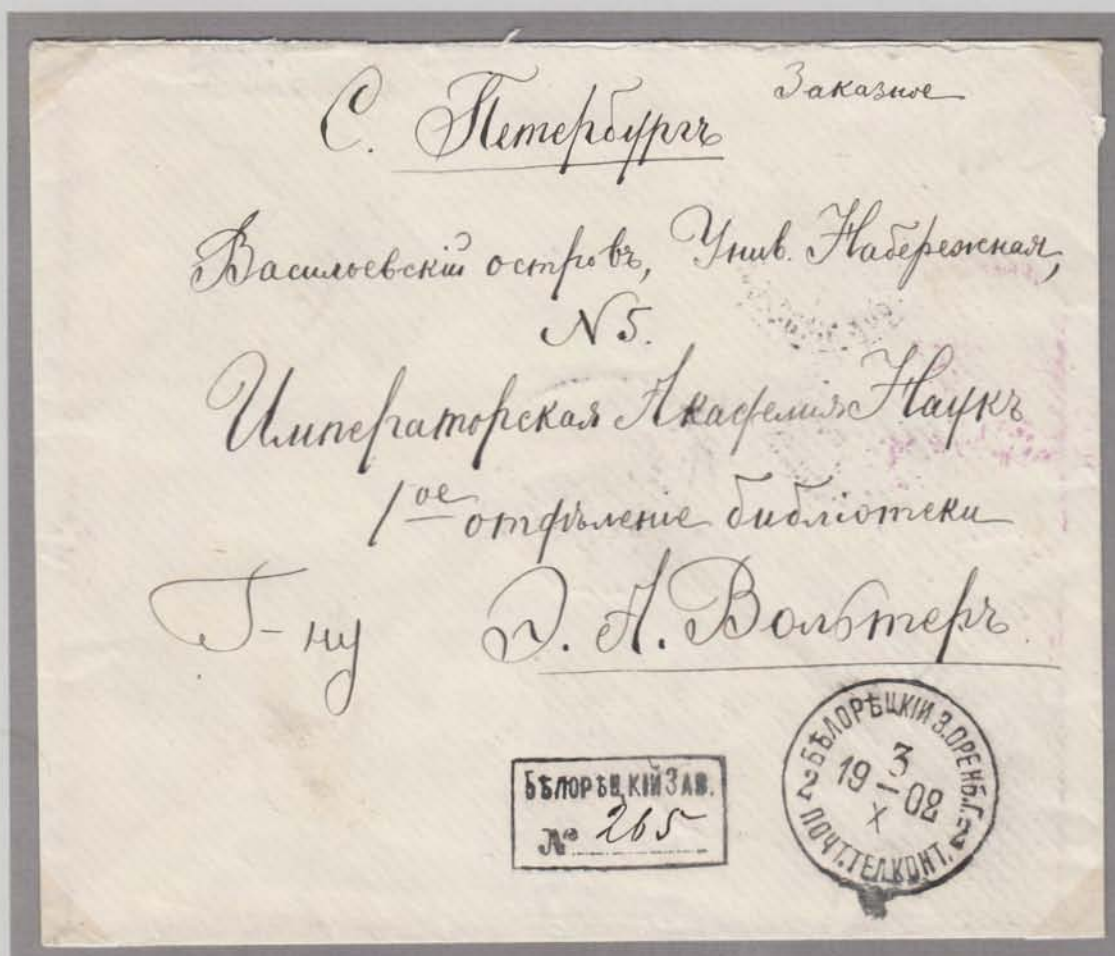 Заказное
С. Петербургъ
Васильевскій островъ, Унив. Набережная,
N 5.
Императорская Академія Наукъ
1ое отдѣленіе библіотеки
Г-ну Э. А. Вольтеръ
БѢЛОРѢЦКІЙ ЗАВ.
№ 265
БѢЛОРѢЦКІЙ З. ОРЕНБ. Г.
3
19 — 02
X
2 ПОЧТ. ТЕЛ. КОНТ. 2